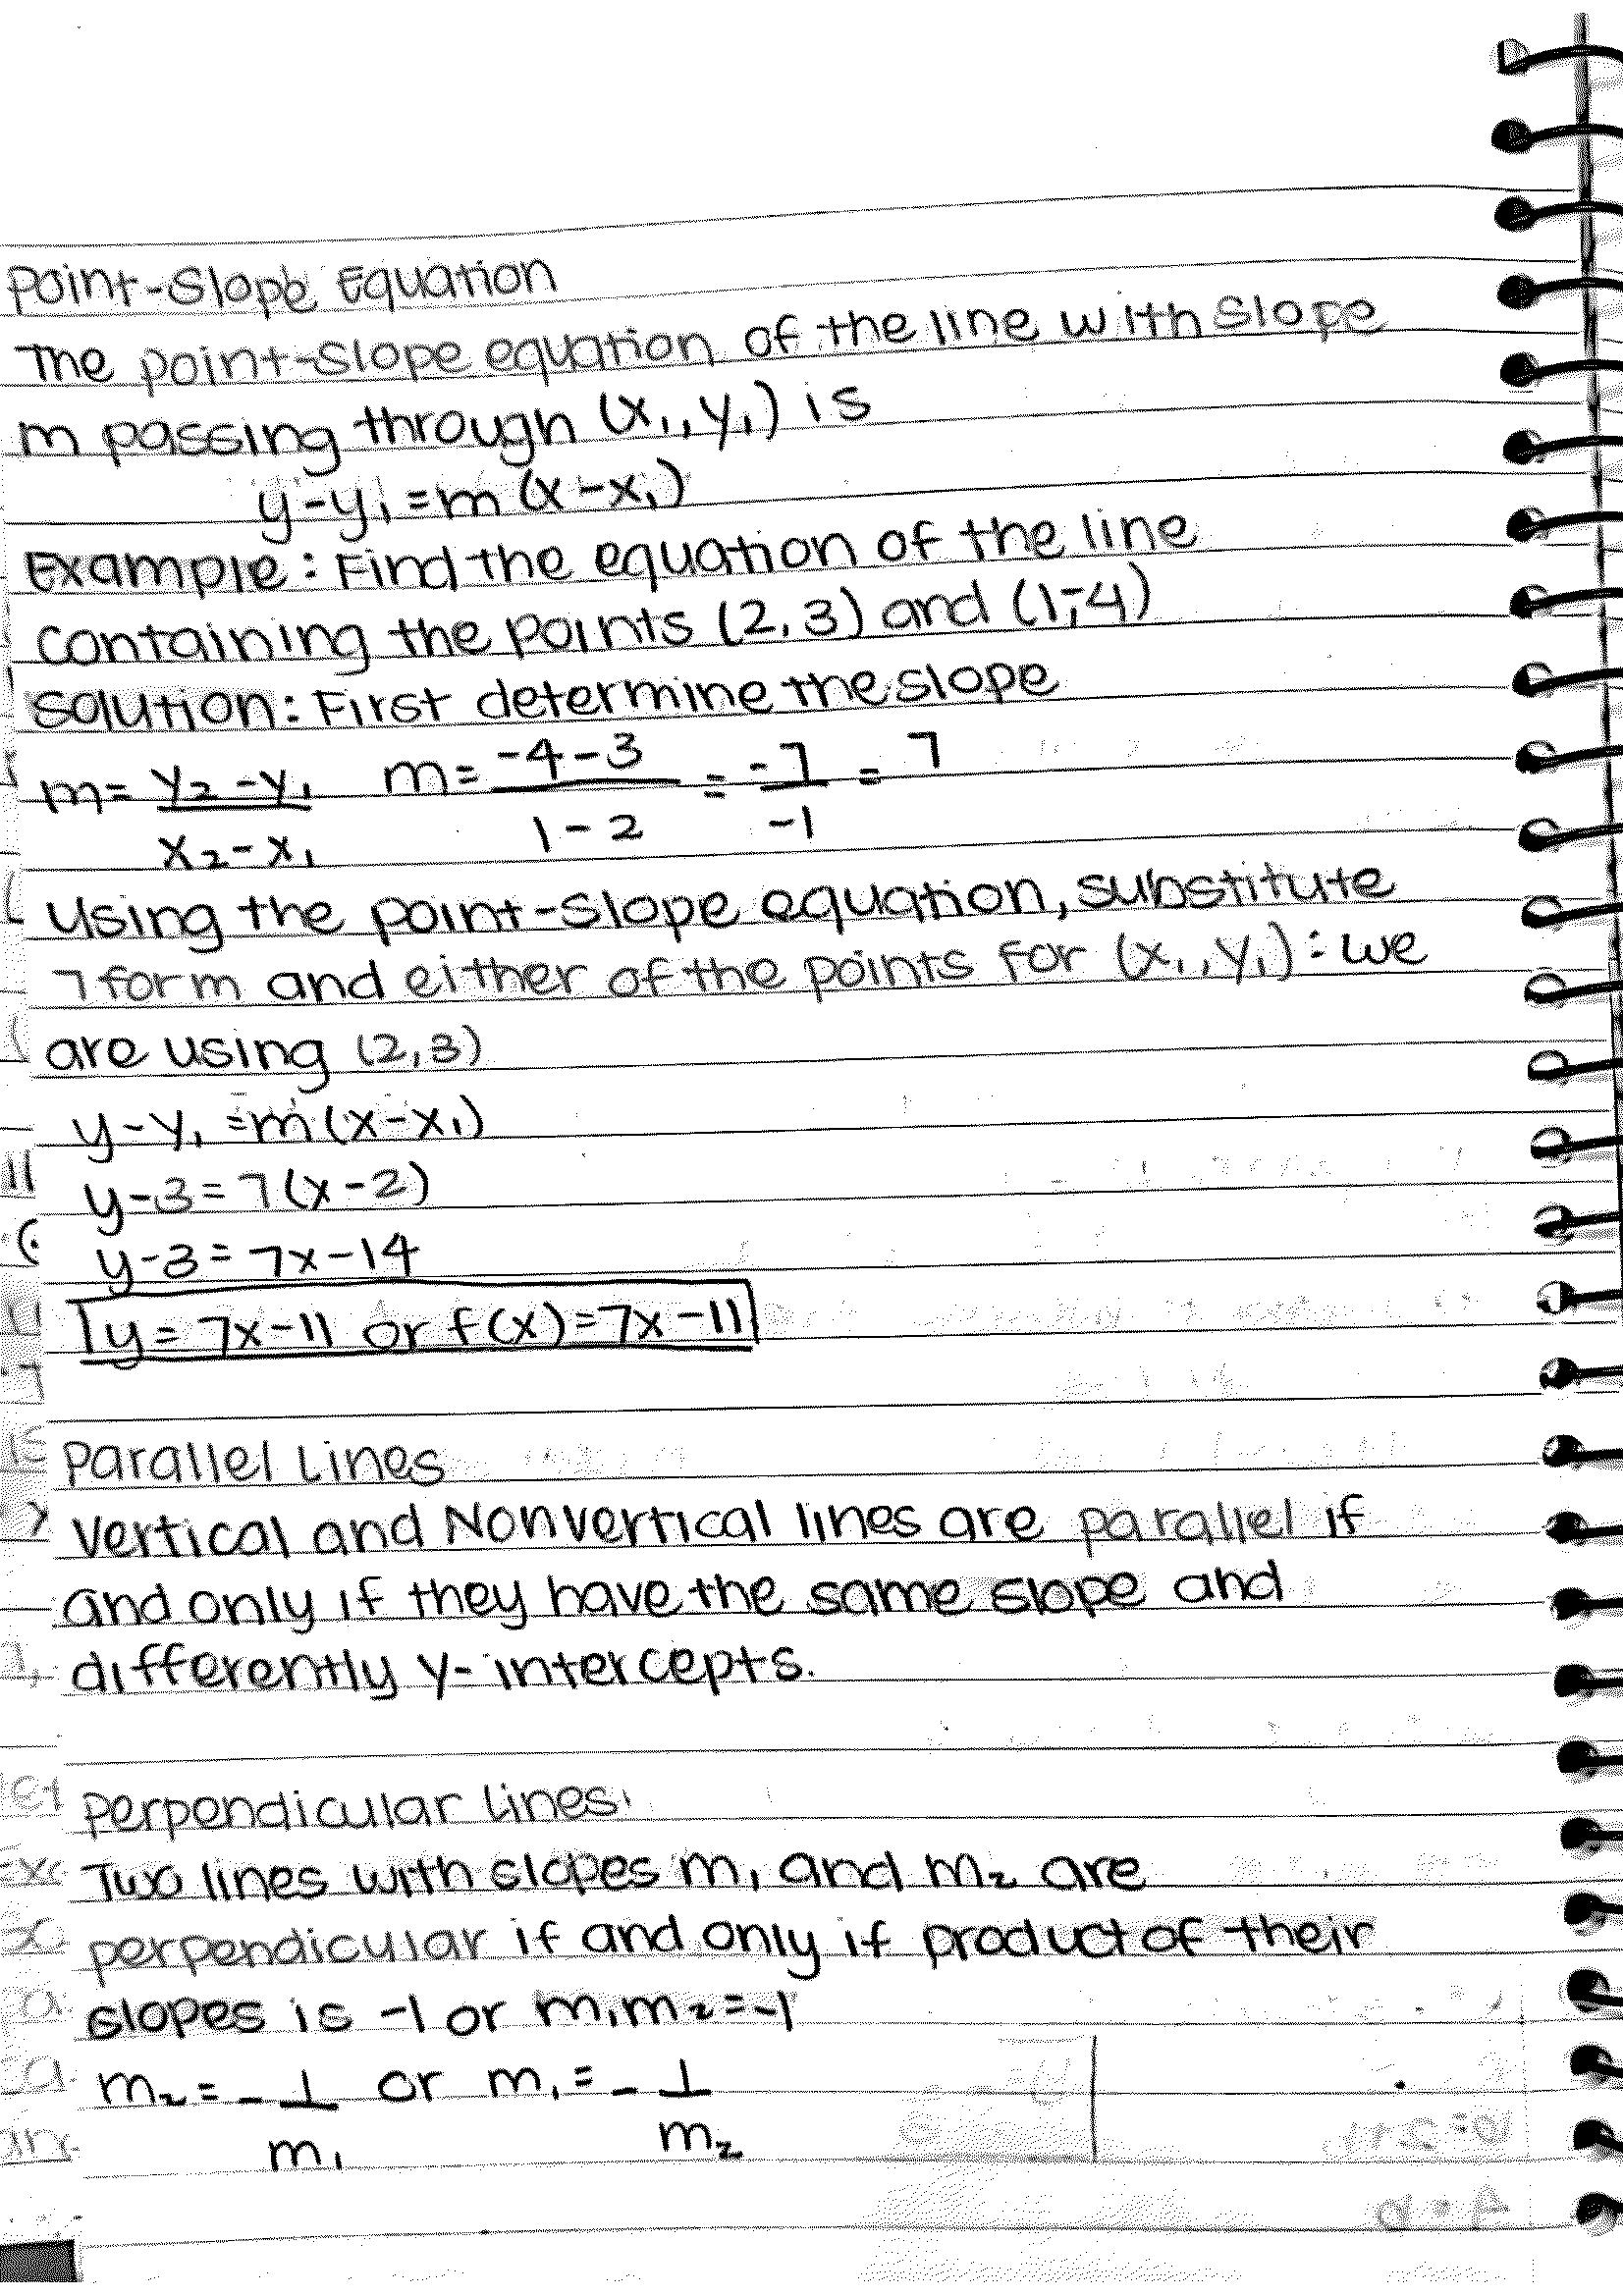 Point-Slope Equation
The point-slope equation of the line with slope
m passing through (x₁, y₁) is
y-y₁ = m (x-x₁)
Example: Find the equation of the line
containing the points (2,3) and (1,-4)
Solution: First determine the slope
m = y₂-y₁/x₂-x₁ m = -4-3/1-2 = -7/-1 = 7
Using the point-slope equation, substitute
7 for m and either of the points for (x₁, y₁): we
are using (2,3)
y-y₁ = m(x-x₁)
y-3 = 7(x-2)
y-3 = 7x-14
y = 7x-11 or f(x) = 7x-11
Parallel Lines
Vertical and Nonvertical lines are parallel if
and only if they have the same slope and
differently y-intercepts.
Perpendicular Lines
Two lines with slopes m₁ and m₂ are
perpendicular if and only if product of their
slopes is -1 or m₁m₂=-1
m₂ = -1/m₁ or m₁ = -1/m₂